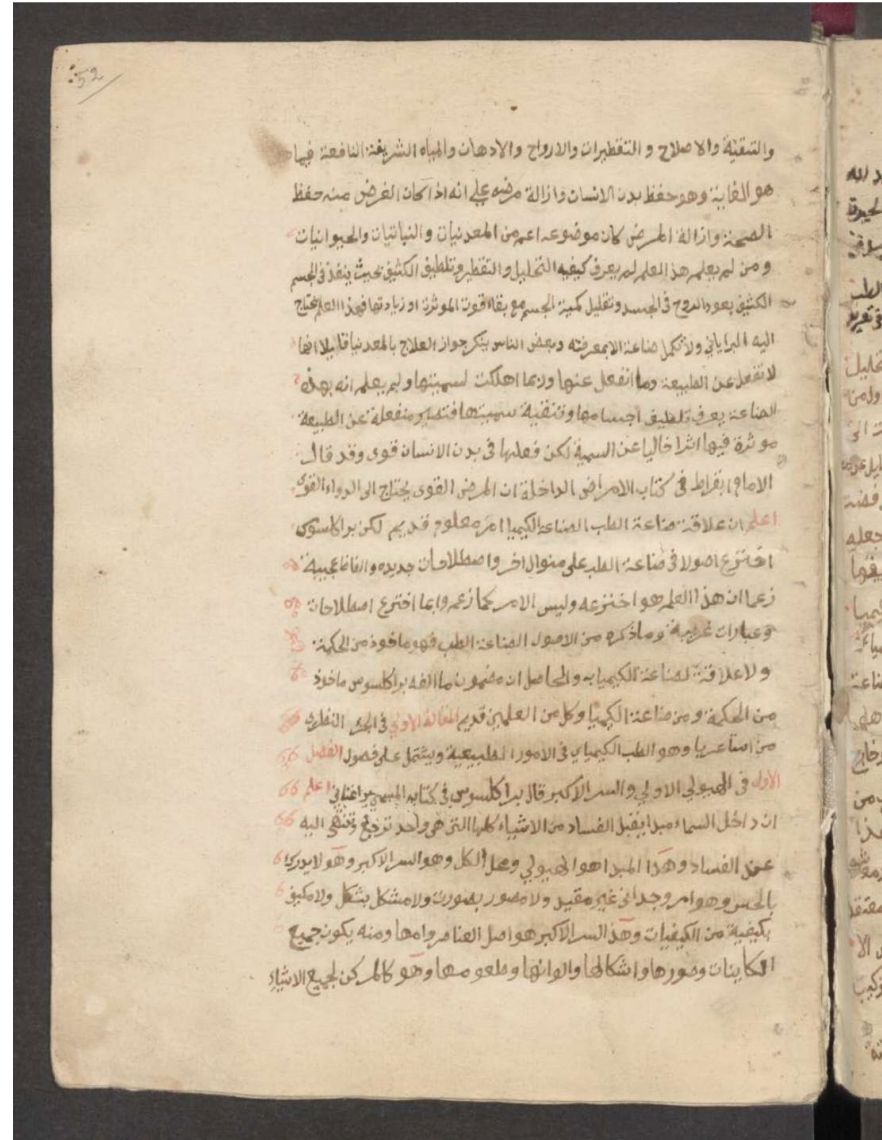 52
والتنقية والاصلاح و التقطيرات والارواح والادهان والمياه الشريفة النافعة فيما
هو الغاية وهو حفظ بدن الانسان وازالة مرضه على انه اذا كان الغرض منه حفظ
الصحة وازالة المرض كان موضوعه اعم من المعدنيات والنباتيات والحيوانيات
ومن لم يعلم هذ العلم لم يعرف كيفية التحليل والتقطير وتلطيف الكثيف بحيث ينفذ في الجسم
الكثيف بعود الروح في الجسد وتقليل كمية الجسم مع بقاء قوت الموثرة او زيادتها فهذا العلم يحتاج
اليه ولا تكمل صناعة الا بمعرفته وبعض الناس ينكر جواز العلاج بالمعدنيا قايلا انها
لا تنفعل عن الطبيعة وما انفعل عنها وربما اهلكت لسميتها ولم يعلم انه بهذه
الصناعة يعرف تلطيف اجسامها وتنقية سميتها فتصير منفعلة عن الطبيعة
موثرة فيها اثرا خاليا عن السمية لكن فعلها في بدن الانسان قوى وقد قال
الامام ابقراط في كتاب الامراض الداخلة ان المرض القوى يحتاج الى الدواء القوى
اعلم ان علاقة صناعة الطب الصناعة الكيميا امر معلوم قديم لكن براكلسوس
اخترع اصولا في صناعة الطب على منوال اخر واصطلاحات جديده والفاظ عجيبة
زعما ان هذا العلم هو اخترعه وليس الامر كما زعم وانما اخترع اصطلاحات
وعبارات غريبة وما ذكره من الاصول الصناعة الطب فهو ماخوذ من الحكمة
ولا علاقة لصناعة الكيميا به والحاصل ان مضمون ما الفه براكلسوس ماخوذ
من الحكمة ومن صناعة الكيميا وكل من العلمين قديم المقالة الاولى في الجزء النظرى
من وهو الطب الكيمياى في الامور الطبيعية ويشتمل على فصول الفصل
الاول في الهيولي الاولي والسر الاكبر قال براكلسوس في كتابه المسمى اعلم
ان داخل السماء مبدا يقبل الفساد من الاشياء كلها التى هى واحد ترجع وتنتهى اليه
عند الفساد وهذا المبدا هو الهيولي ومحل الكل وهو السر الاكبر وهو لا يدرك
بالحس وهو امر وجدانى غير مقيد ولا مصور بصورت ولا مشكل بشكل ولا مكيف
بكيفية من الكيفيات وهذ السر الاكبر هو اصل العناصر وامها ومنه يكون جميع
الكاينات وصورها واشكالها والوانها وطعومها وهو كالمركز لجميع الاشياء